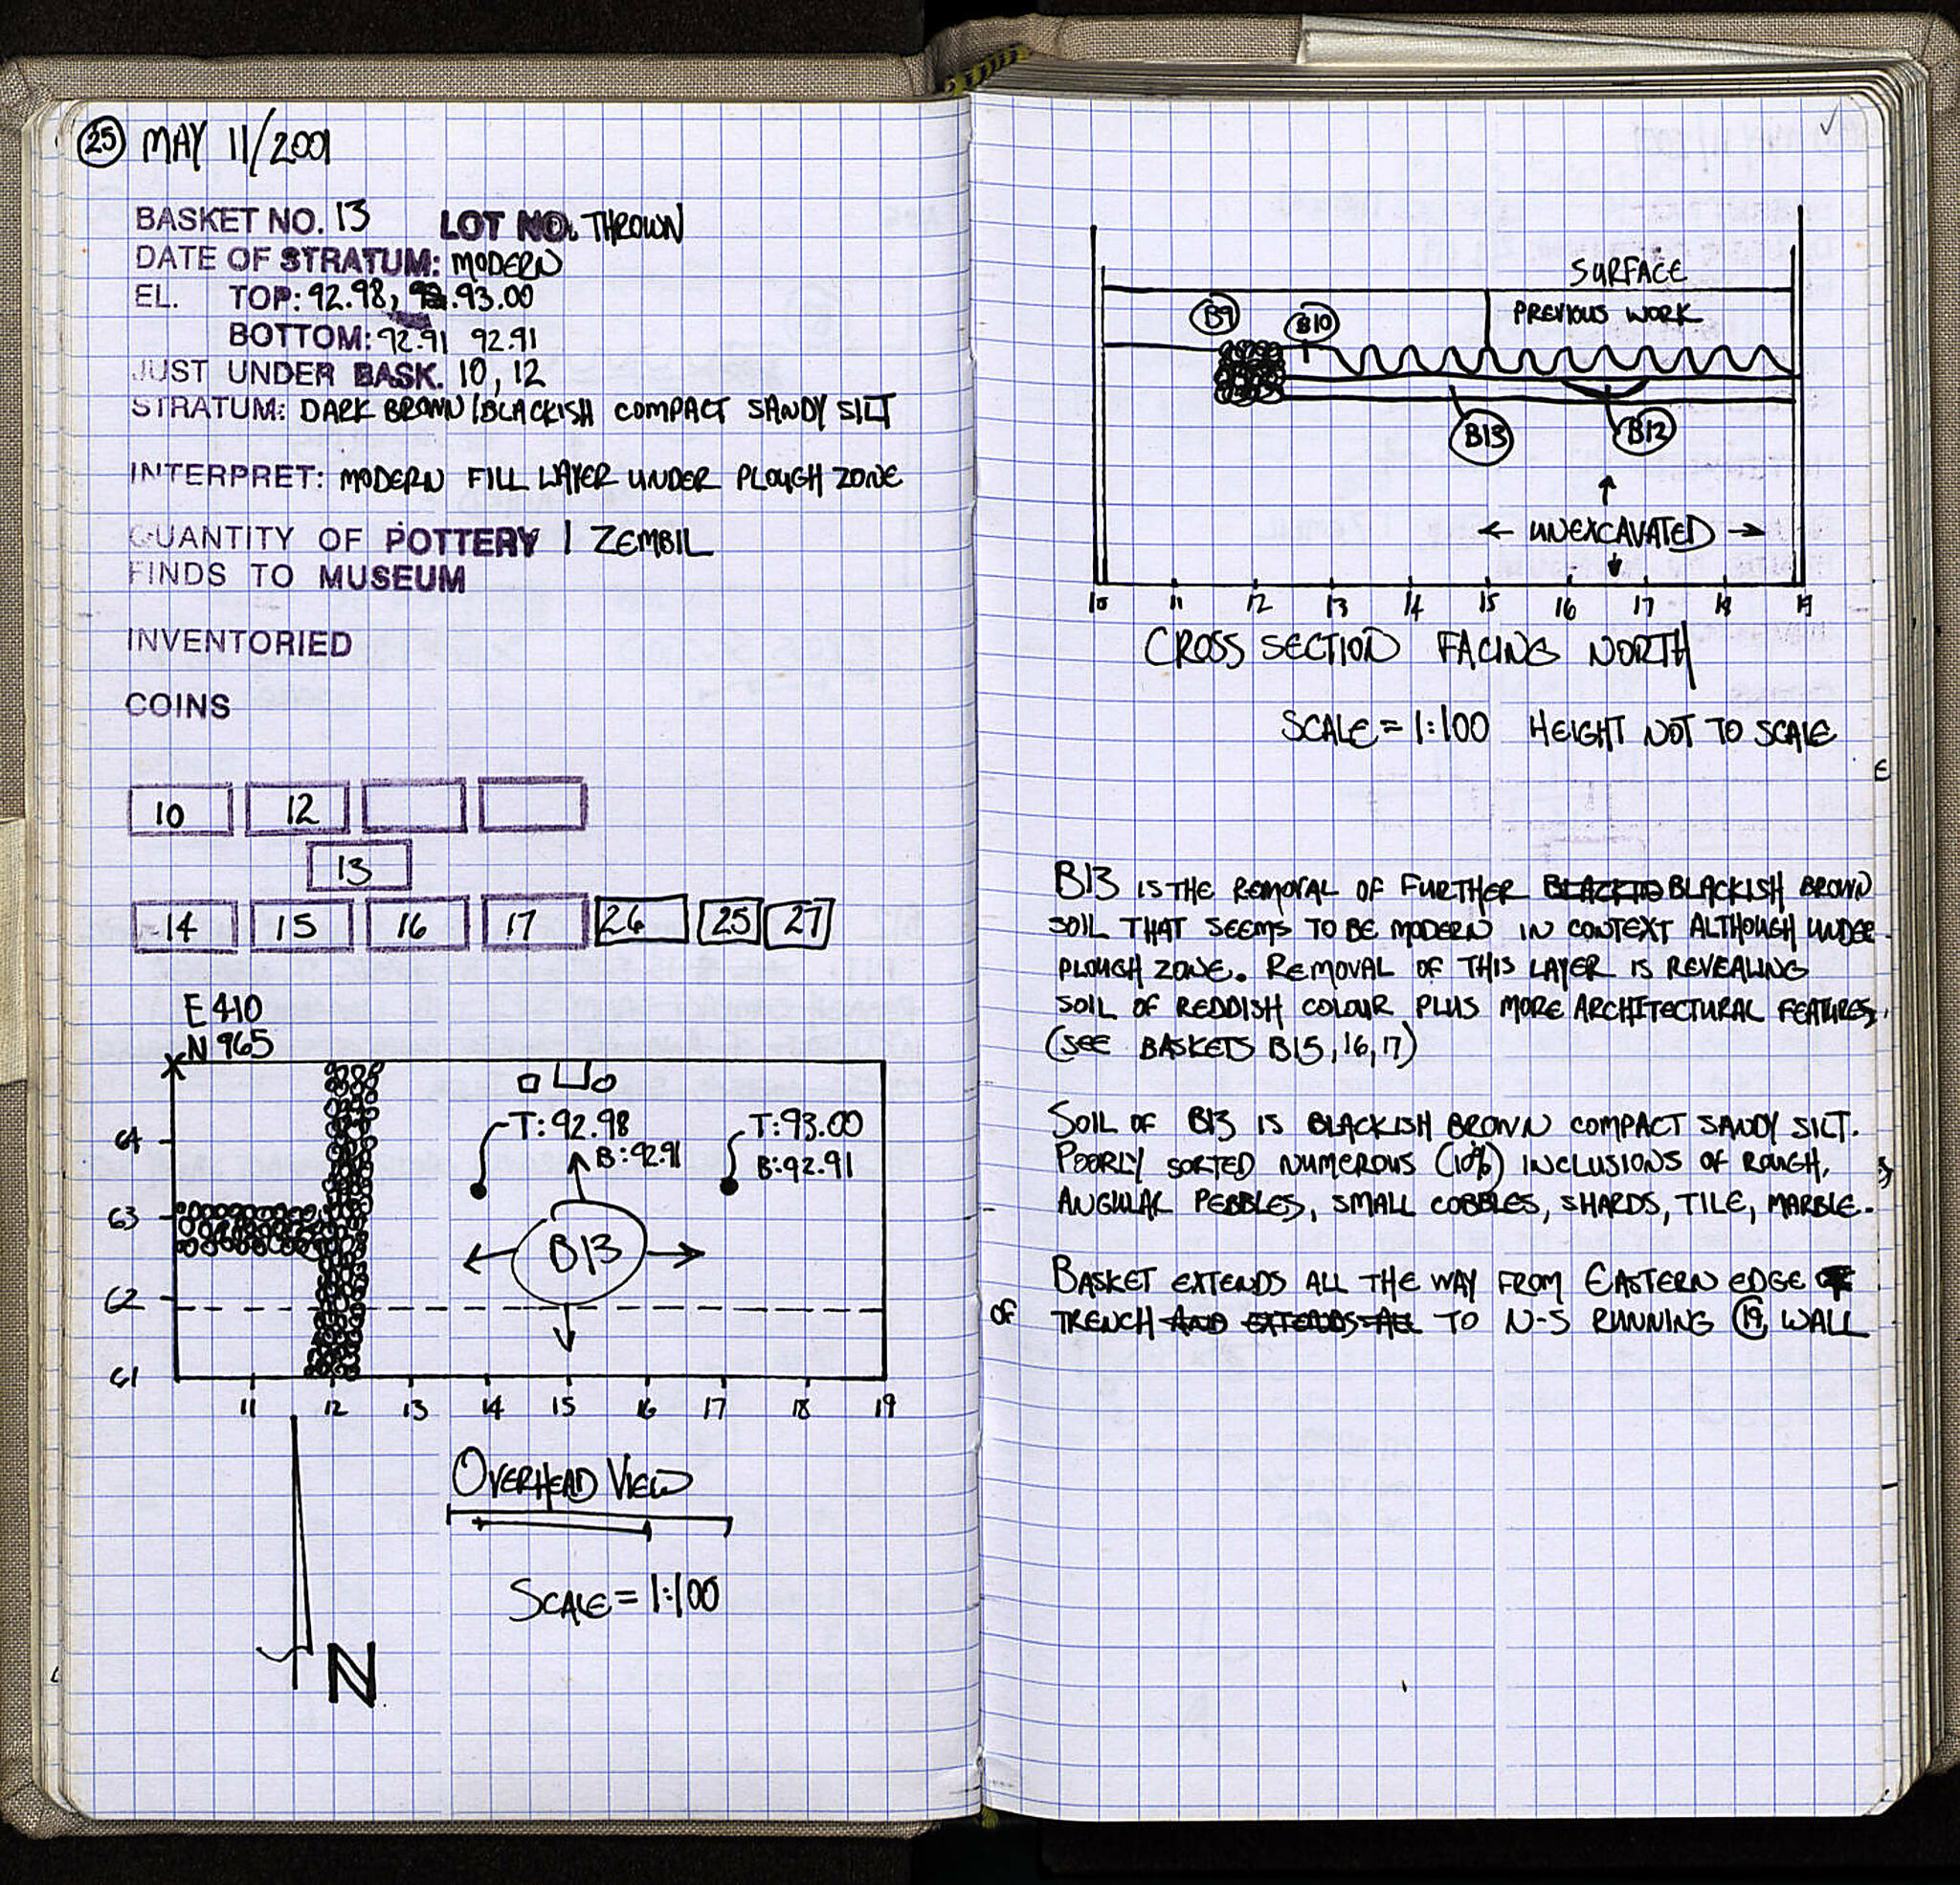 25 MAY 11/2001
BASKET NO. 13 LOT NO. THROWN
DATE OF STRATUM: MODERN
EL. TOP: 92.98, 93.00
BOTTOM: 92.91 92.91
JUST UNDER BASK. 10, 12
STRATUM: DARK BROWN/BLACKISH COMPACT SANDY SILT
INTERPRET: MODERN FILL LAYER UNDER PLOUGH ZONE
QUANTITY OF POTTERY 1 ZEMBIL
FINDS TO MUSEUM
INVENTORIED
COINS
10 12
13
14 15 16 17 26 25 27
E 410
N 965
T: 92.98 T: 93.00
B: 92.91 B: 92.91
64
63
B13
62
61
11 12 13 14 15 16 17 18 19
OVERHEAD VIEW
SCALE = 1:100
N
SURFACE
B9 B10 PREVIOUS WORK
B13 B12
UNEXCAVATED
10 11 12 13 14 15 16 17 18 19
CROSS SECTION FACING NORTH
SCALE = 1:100 HEIGHT NOT TO SCALE
B13 IS THE REMOVAL OF FURTHER BLACKISH BROWN
SOIL THAT SEEMS TO BE MODERN IN CONTEXT ALTHOUGH UNDER
PLOUGH ZONE. REMOVAL OF THIS LAYER IS REVEALING
SOIL OF REDDISH COLOUR PLUS MORE ARCHITECTURAL FEATURES.
(SEE BASKETS B15, 16, 17)
SOIL OF B13 IS BLACKISH BROWN COMPACT SANDY SILT.
POORLY SORTED NUMEROUS (10%) INCLUSIONS OF ROUGH,
ANGULAR PEBBLES, SMALL COBBLES, SHARDS, TILE, MARBLE.
BASKET EXTENDS ALL THE WAY FROM EASTERN EDGE
OF TRENCH AND EXTENDS ALL TO N-S RUNNING WALL